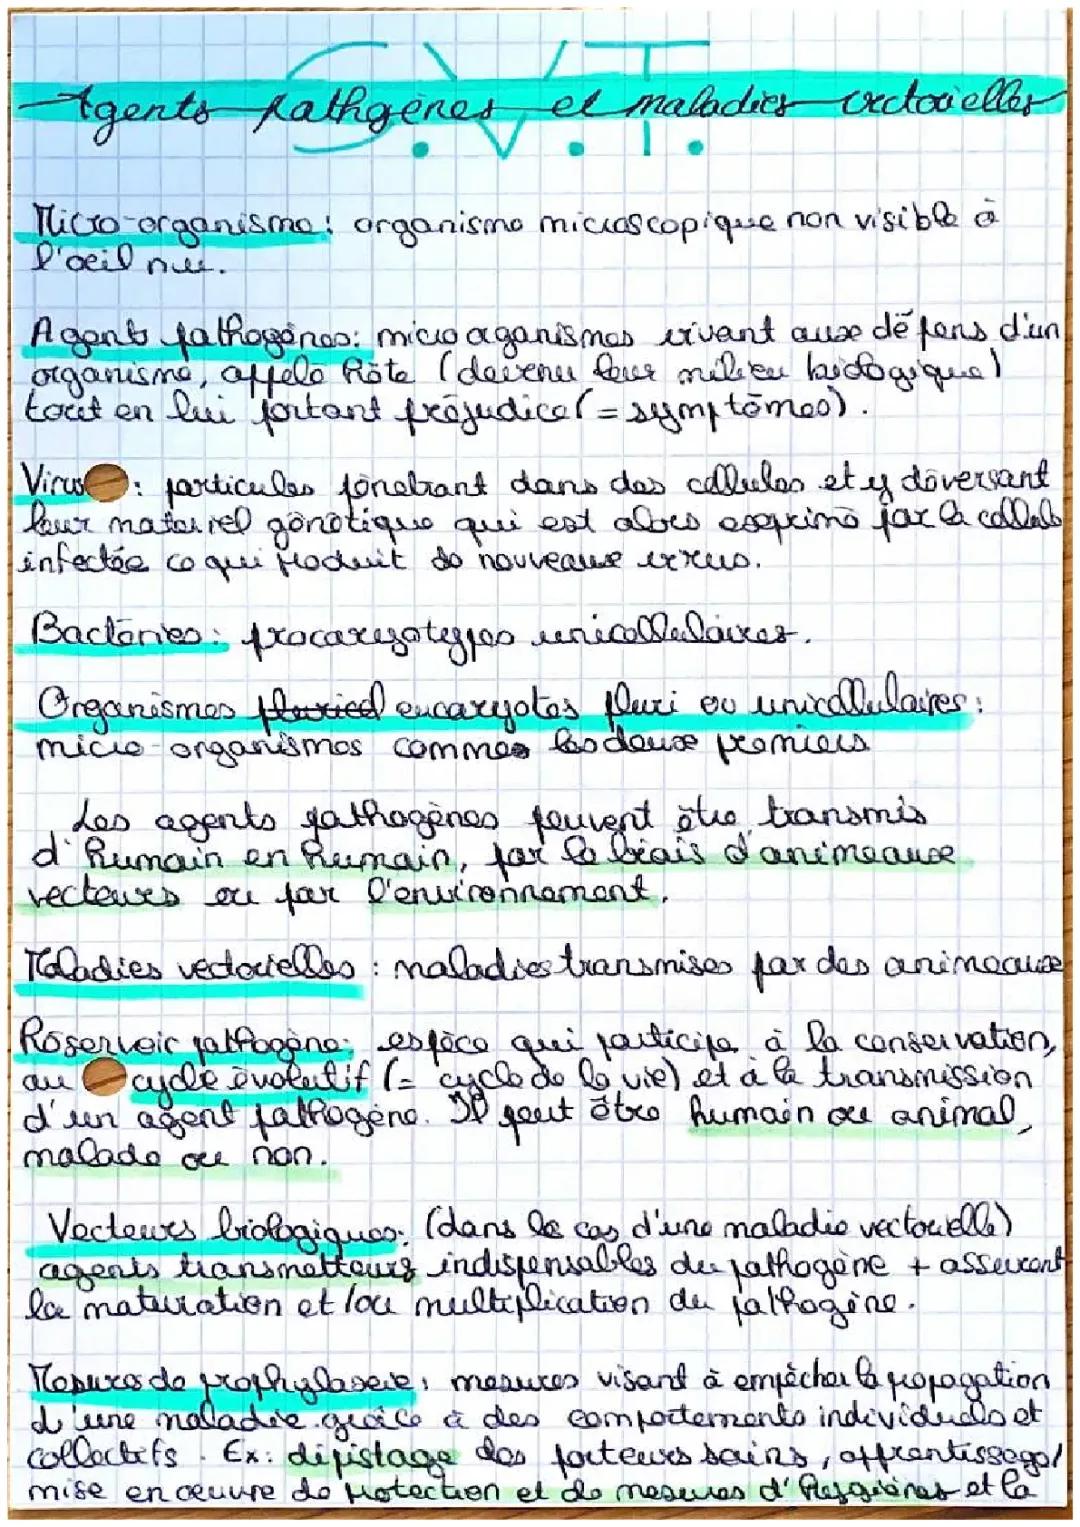 S.V.T.
Agents pathgènes et maladies vectorielles
Micro-organisme : organisme microscopique non visible à
l'oeil nu.
Agents pathogènes : micro oganismes vivant aux dépens d'un
organisme, appelé hôte (devenu leur milieu biologique)
tout en lui portant préjudice (= symptômes).
Virus : particules pénétrant dans des cellules et y déversant
leur matériel génétique qui est alors exprimé par la cellule
infectée ce qui produit de nouveaux virus.
Bactéries : procaryotypes unicellulaires.
Organismes pluricel eucaryotes pluri ou unicellulaires :
micro-organismes commes les deux premiers
Les agents pathogènes peuvent être transmis
d'humain en humain, par le biais d'animeaux
vecteurs ou par l'environnement.
Maladies vectorielles : maladies transmises par des animeaux
Réservoir pathogène : espèce qui participe à la conservation,
au cycle évolutif (= cycle de la vie) et à la transmission
d'un agent pathogène. Il peut être humain ou animal,
malade ou non.
Vecteurs biologiques : (dans le cas d'une maladie vectorielle)
agents transmetteurs indispensables du pathogène + assurant
la maturation et/ou multiplication du pathogène.
Mesures de prophylaxie : mesures visant à empêcher la propagation
d'une maladie grâce à des comportements individuels et
collectifs. Ex : dépistage des porteurs sains, apprentissage/
mise en œuvre de protection et de mesures d'hygiènes et la